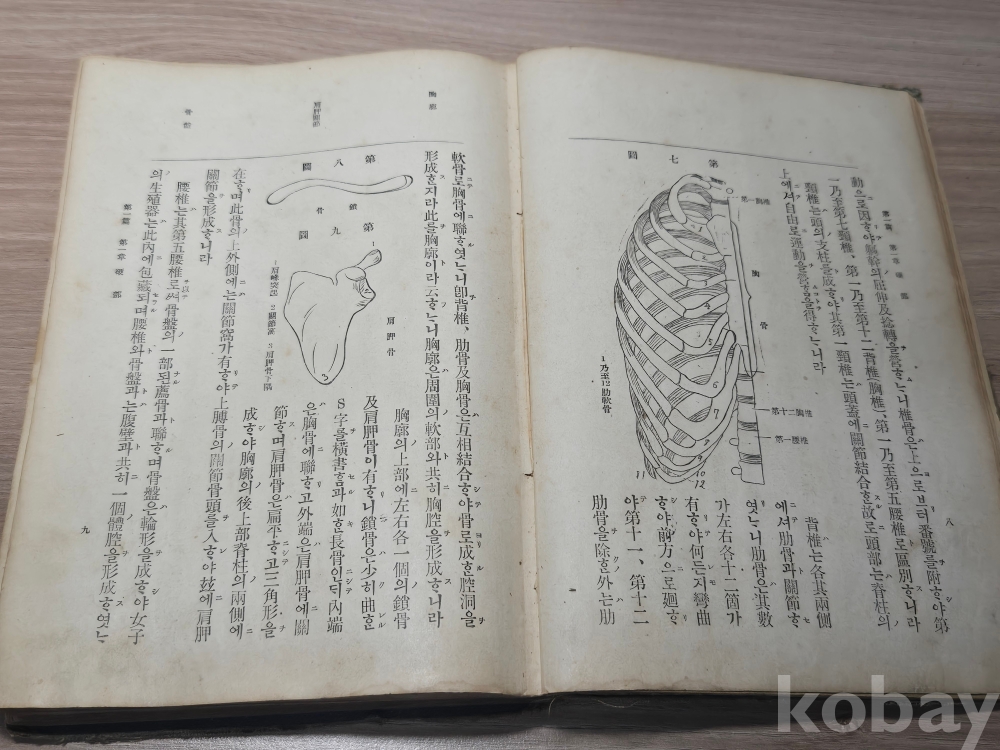 第一篇 第一章 硬部
八
動으로因ᄒᆞ야軀幹의屈伸及捻轉을營ᄒᆞᄂᆞ니椎骨은上으로브터番號를附ᄒᆞ야第
一乃至第七頸椎、第一乃至第十二背椎(胸椎)、第一乃至第五腰椎로區別ᄒᆞᄂᆞ니라
頸椎는頭의支柱를成ᄒᆞ야其第一頸椎는頭蓋에關節結合ᄒᆞᆫ故로頭部는脊柱의
上에셔自由로運動을營ᄒᆞᆷ을得ᄒᆞᄂᆞ니라
第七圖
第一胸椎
胸骨
第十二胸椎
第一腰椎
7
10
11
12
1乃至12肋軟骨
背椎는各其兩側
에셔肋骨과關節ᄒᆞ
엿ᄂᆞ니肋骨은其數
가左右各十二箇가
有ᄒᆞ야何든지彎曲
ᄒᆞ야前方으로廻ᄒᆞ
야第十一、第十二
肋骨을除ᄒᆞᆫ外는肋
胸廓
肩胛關節
骨盤
軟骨로胸骨에聯ᄒᆞ엿ᄂᆞ니卽背椎、肋骨及胸骨은互相結合ᄒᆞ야骨로成ᄒᆞᆫ腔洞을
形成ᄒᆞᆫ지라此를胸廓이라云ᄒᆞᄂᆞ니胸廓은周圍의軟部와共히胸腔을形成ᄒᆞᄂᆞ니라
胸廓의上部에左右各一個의鎖骨
及肩胛骨이有ᄒᆞ니鎖骨은少히曲ᄒᆞᆫ
S字를橫書ᄒᆞᆷ과如ᄒᆞᆫ長骨인ᄃᆡ內端
은胸骨에聯ᄒᆞ고外端은肩胛骨에關
節ᄒᆞ며肩胛骨은扁平ᄒᆞ고三角形을
成ᄒᆞ야胸廓의後上部脊柱의兩側에
第八圖
鎖骨
第九圖
肩胛骨
1
3
1肩峰突起 2關節窩 3肩胛骨下隅
在ᄒᆞ며此骨의上外側에는關節窩가有ᄒᆞ야上膊骨의關節骨頭를入ᄒᆞ야玆에肩胛
關節을形成ᄒᆞᄂᆞ니라
腰椎는其第五腰椎로써骨盤의一部된薦骨과聯ᄒᆞ며骨盤은輪形을成ᄒᆞ야女子
의生殖器는此內에包藏되며腰椎와骨盤과는腹壁과共히一個體腔을形成ᄒᆞ엿ᄂᆞᆫ
第一篇 第一章 硬部
九
kobay